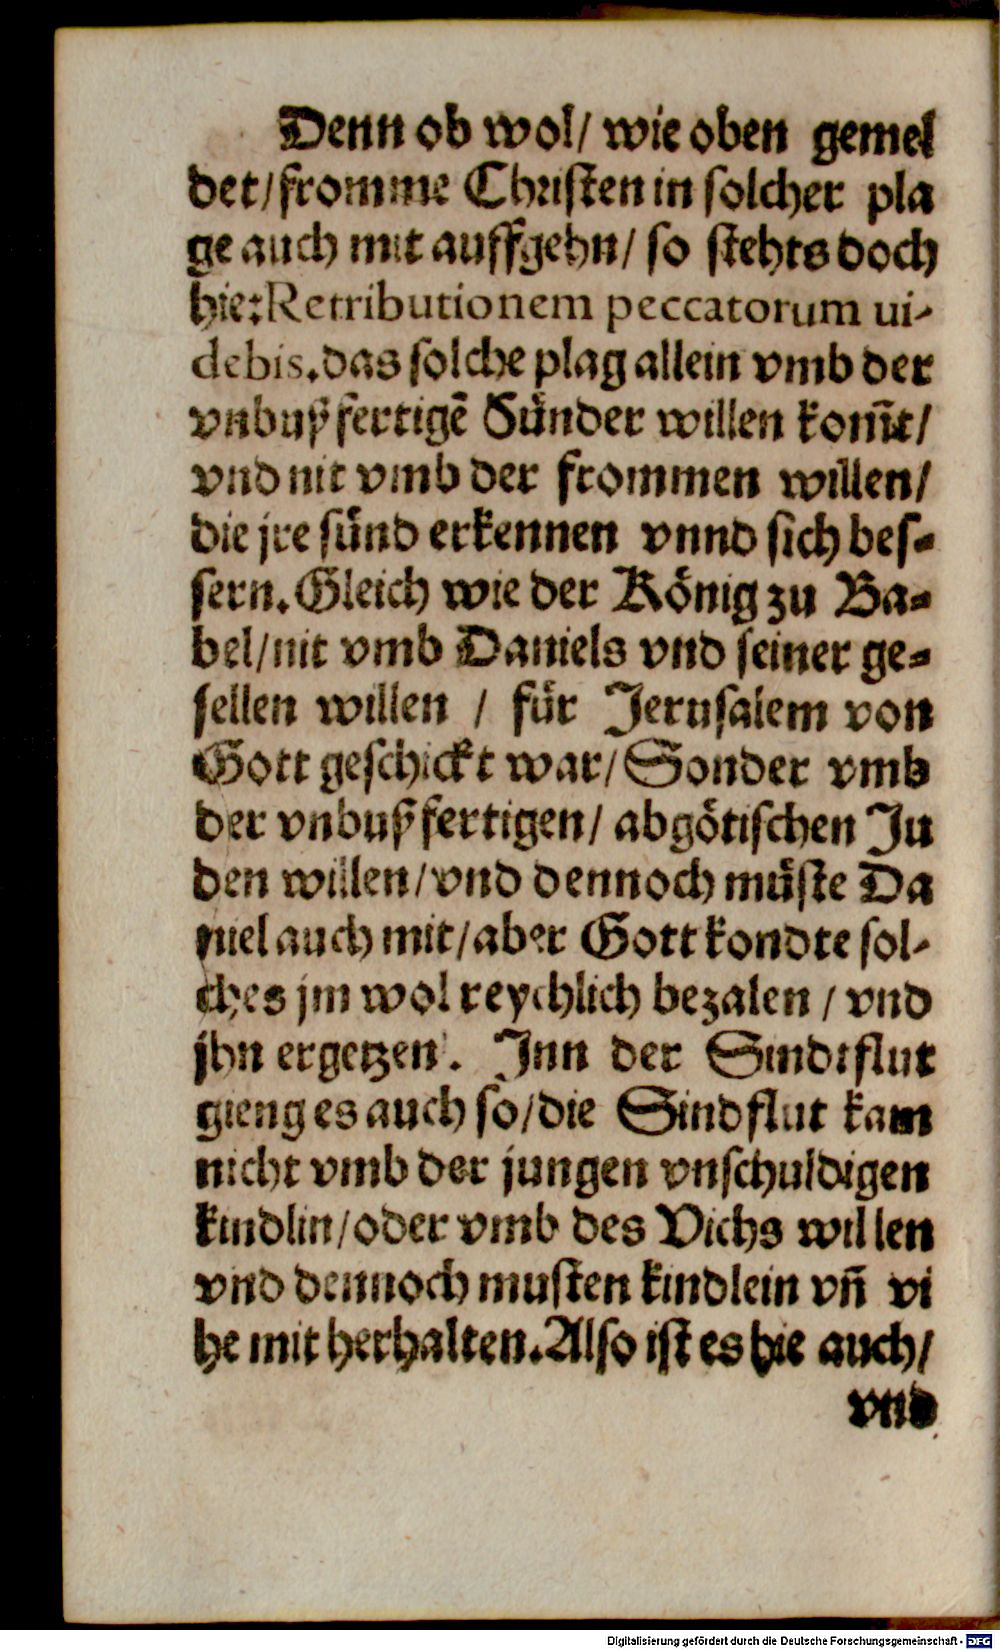 Denn ob wol/ wie oben gemel
det/ fromme Christen in solcher pla
ge auch mit auffgehn/ so stehts doch
hie: Retributionem peccatorum ui-
debis. das solche plag allein vmb der
vnbußfertigē Sünder willen kom̄t/
vnd nit vmb der frommen willen/
die jre sünd erkennen vnnd sich bes-
sern. Gleich wie der König zu Ba-
bel/ nit vmb Daniels vnd seiner ge-
sellen willen / für Jerusalem von
Gott geschickt war/ Sonder vmb
der vnbußfertigen/ abgötischen Ju
den willen/ vnd dennoch müste Da
niel auch mit/ aber Gott kondte sol-
ches jm wol reychlich bezalen / vnd
jhn ergetzen. Jnn der Sindtflut
gieng es auch so/ die Sindflut kam
nicht vmb der jungen vnschuldigen
kindlin/ oder vmb des Vichs willen
vnd dennoch musten kindlein vn̄ vi
he mit herhalten. Also ist es hie auch/
vnd
Digitalisierung gefördert durch die Deutsche Forschungsgemeinschaft - DFG